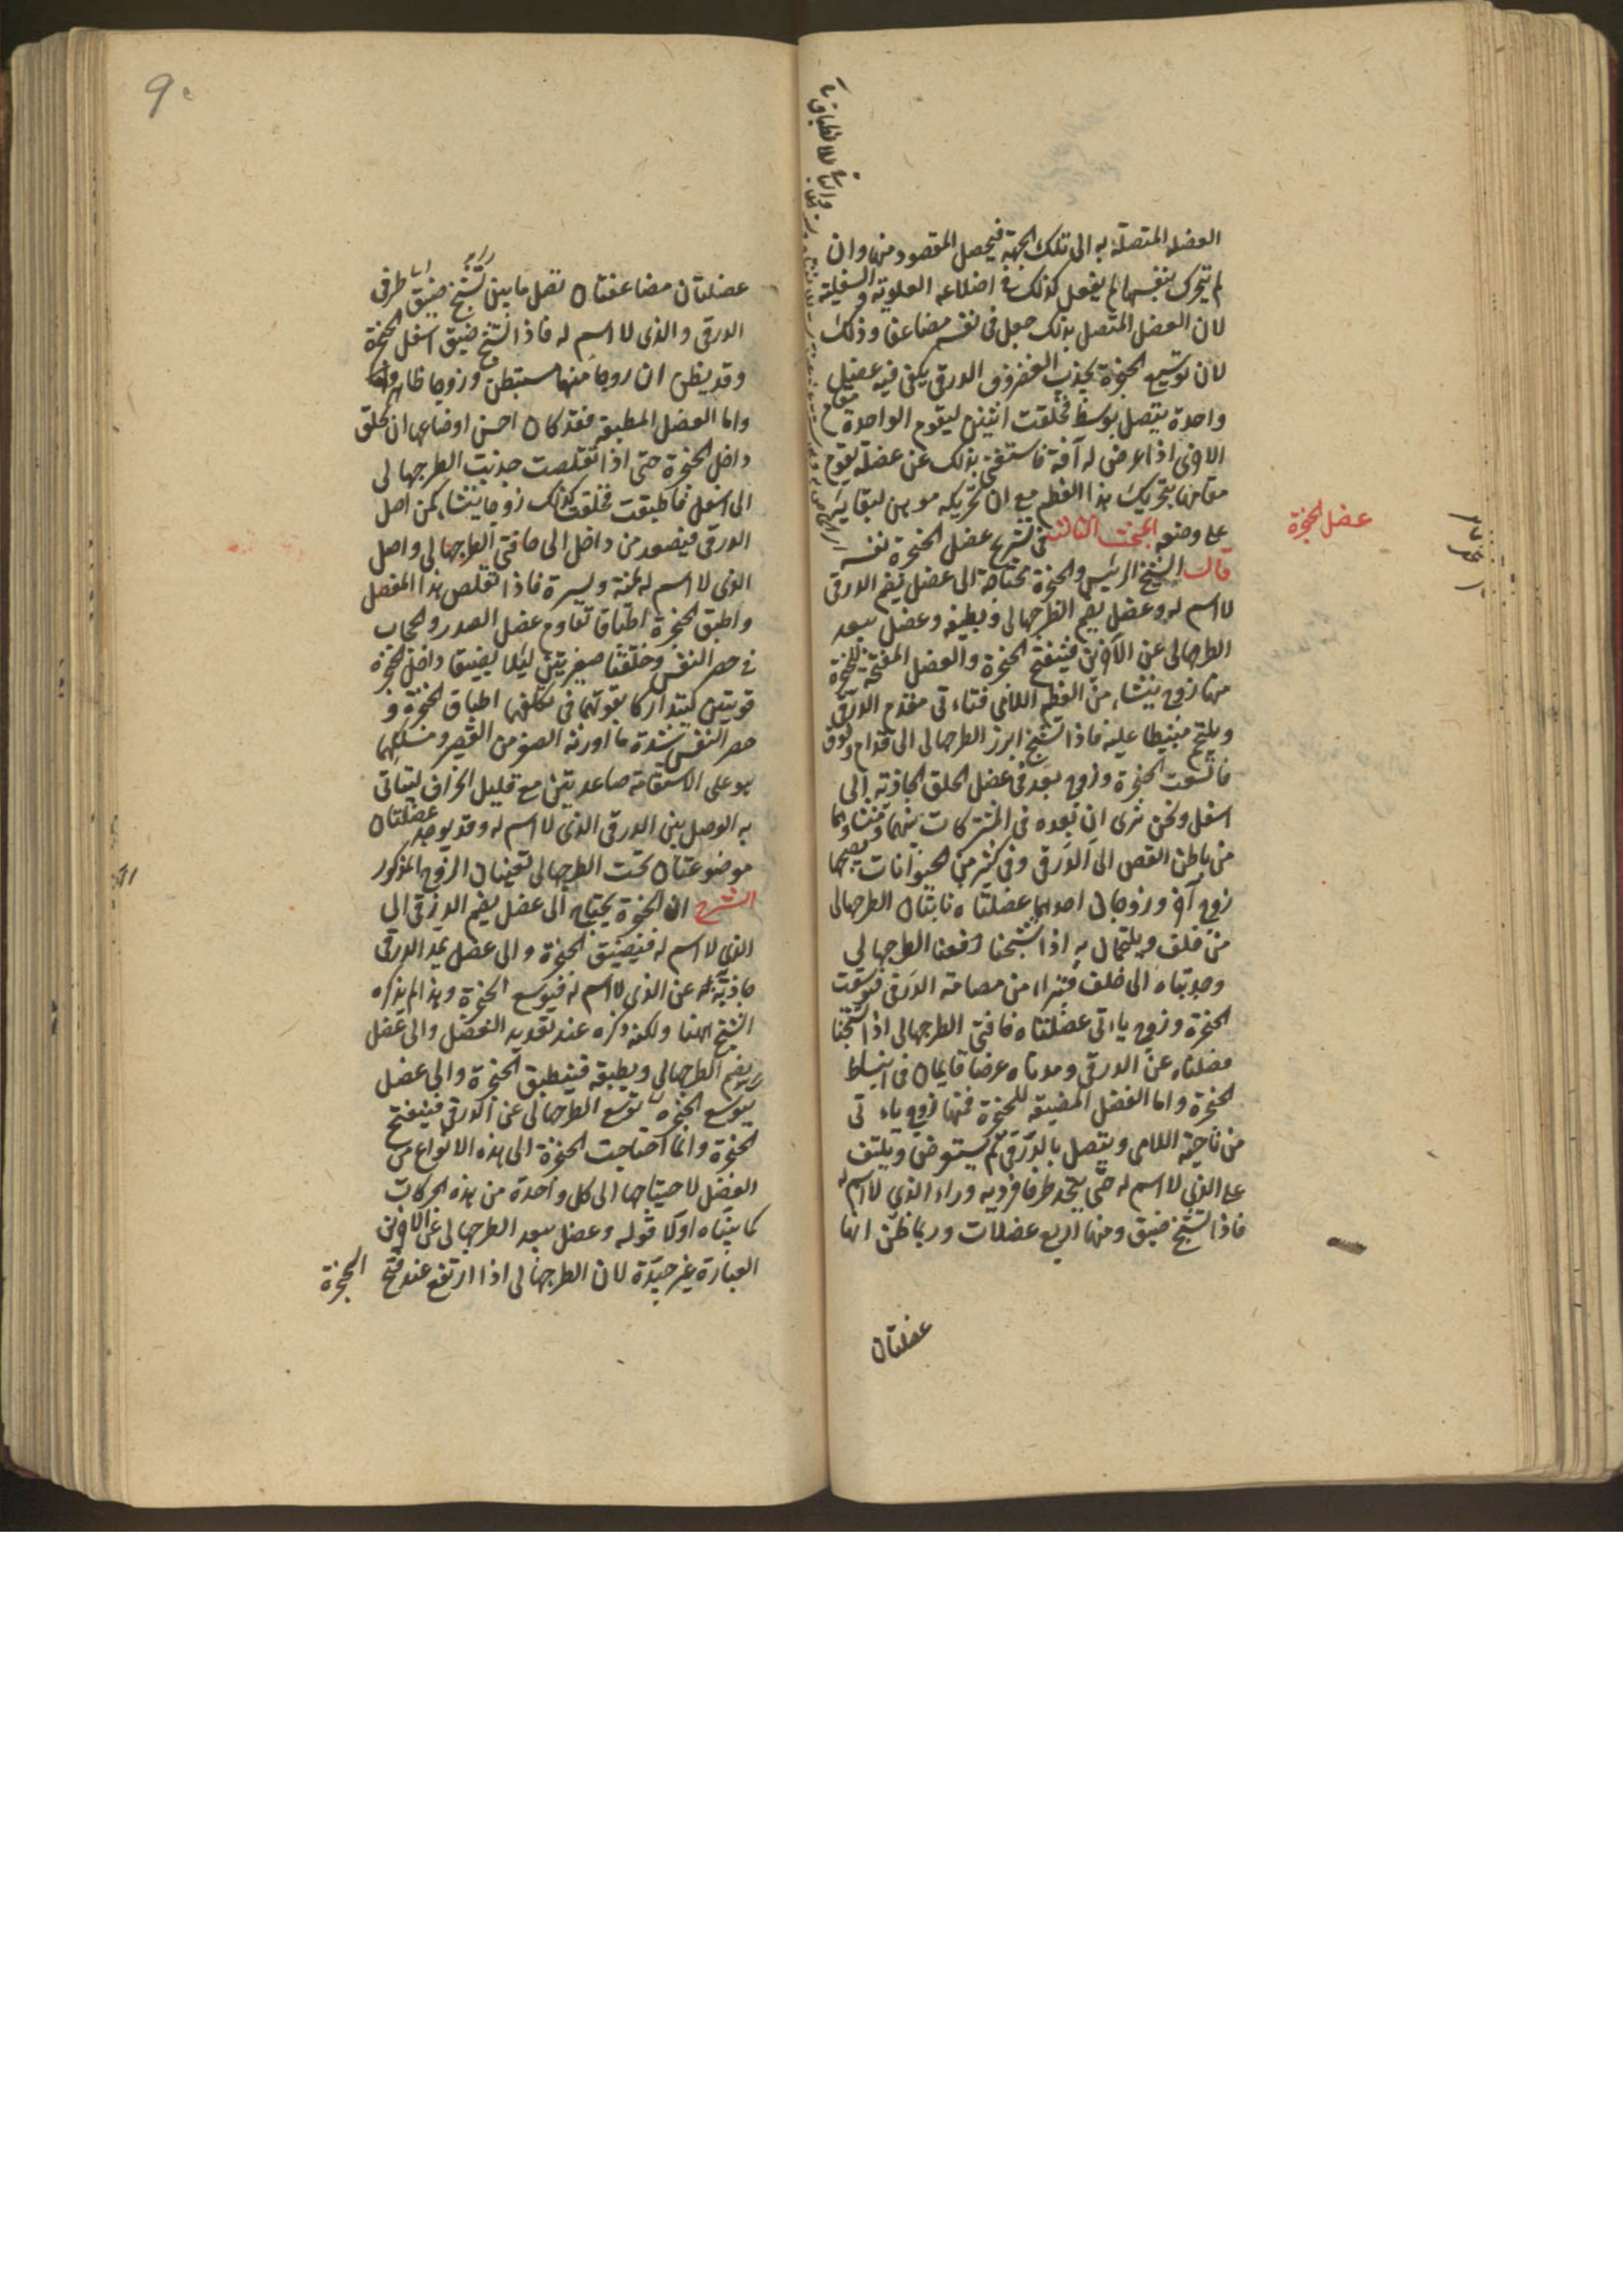 العضلة المتصلة به الى تلك الجهة فيحصل المقصود منها وان
لم يتحرك بنفسها لم يفعل كذلك في اضلاعه العلوية والسفلية
لان العضل المتصل بذلك جعل في نفسه مضاعفا وذلك
لان توسيع الحنجرة بجذب الغضروف الدرقى يكفى فيه عضل
واحدة يتصل بوسط فخلقت اثنين ليقوم الواحدة مقام
الاخرى اذا عرض له آفة فاستغنى بذلك عن عضلة يقوم
مقامها بتحريك هذا العظم مع ان تحريكه موهن لبقايه
على وضعه المبحث الثالث فى تشريح عضل الحنجرة نفسه
عضل الحنجرة
قال الشيخ الرئيس والحنجرة محتاجة الى عضل يضم الدرقى
لا اسم له وعضل يضم الطرجهالى ويطبقه وعضل يبعد
الطرجهالى عن الآخرين فينفتح الحنجرة والعضل المفتحة للحنجرة
منها زوج ينشاء من العظم اللامى فتاءتى مقدم الدرقى
ويلتحم منبسطا عليه فاذا تشنج ابرز الطرجهالى الى قدام وفوق
فاتسعت الحنجرة وزوج يعد فى عضل الحلق الجاذبة الى
اسفل ونحن نرى ان نعده فى المشتركات بينهما ومنشاوهما
من باطن القص الى الدرقى وفى كثير من الحيوانات يصحبهما
زوج آخر وزوجان احدهما عضلتاه نابتان الطرجهالى
من خلف ويلتحمان به اذا تشنجا رفعتا الطرجهالى
وجذبتاه الى خلف فتبراء من مصامة الدرقى فتوسعت
الحنجرة وزوج ياءتى عضلتاه حافتى الطرجهالى اذا تشنجتا
فصلتاه عن الدرقى ومدتاه عرضا فاعان فى انبساط
الحنجرة واما العضل المضيقة للحنجرة فمنها زوج ياءتى
من ناحية اللامى ويتصل بالدرقى ثم يستعرض ويلتف
على الذى لا اسم له حتى يتحد طرفا فرديه وراء الذى لا اسم له
فاذا تشنج ضيق ومنها اربع عضلات وربما ظن انها
عضلتان
9
عضلتان مضاعفتان تصل ما بين طرفى
الدرقى والذى لا اسم له فاذا تشنج ضيق اسفل الحنجرة
وقد يظن ان زوجا منها مستبطن وزوجا ظاهر
واما العضل المطبقة فقد كان احسن اوضاعها ان يخلق
داخل الحنجرة حتى اذا تقلصت جذبت الطرجهالى
الى اسفل فاطبقت فخلقت كذلك زوجا ينشاء من اصل
الدرقى فيصعد من داخل الى حافتى الطرجهالى واصل
الذى لا اسم له يمنة ويسرة فاذا تقلص هذا المفصل
واطبق الحنجرة اطباقا تقاوم عضل الصدر والحجاب
فى حصر النفس وخلقتا صغيرتين ليلا يضيقا داخل الحنجرة
قويتين ليتداركا بقوتهما فى تكلفهما اطباق الحنجرة و
حصر النفس بشدة ما اورثه الصغر من التقصير ومسلكهما
هو على الاستقامة صاعدتين مع قليل انحراف ليتاتى
به الوصل بين الدرقى الذى لا اسم له وقد يوجد عضلتان
موضوعتان تحت الطرجهالى تعينان الزوج المذكور
الشرح ان الحنجرة يحتاج الى عضل يضم الدرقى الى
الذى لا اسم له فيضيق الحنجرة والى عضل يبعد الدرقى
عن الذى لا اسم له فيوسع الحنجرة وهذا لم يذكره
الشيخ ههنا ولكنه ذكره عند تعديد العضل والى عضل
يضم الطرجهالى ويطبقه فينطبق الحنجرة والى عضل
يوسع الحنجرة الطرجهالى عن الدرقى فينفتح
الحنجرة وانما احتاجت الحنجرة الى هذه الانواع من
العضل لاحتياجها الى كل واحدة من هذه الحركات
كما بيناه اولا قوله وعضل يبعد الطرجهالى عن الاخرين
العبارة غير جيدة لان الطرجهالى اذا ارتفع عند فتح
الحنجرة